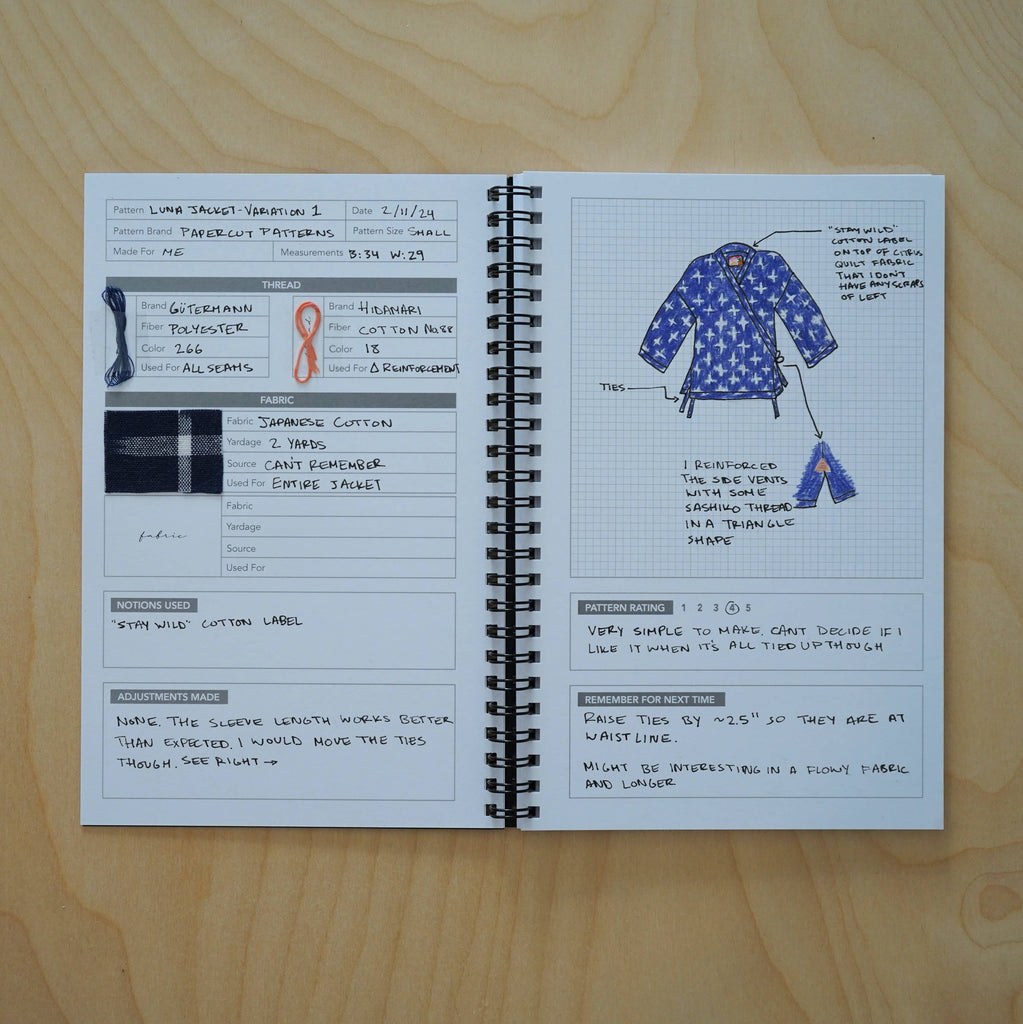 Pattern LUNA JACKET-VARIATION 1 Date 2/11/24
Pattern Brand PAPERCUT PATTERNS Pattern Size SMALL
Made For ME Measurements B:34 W:29
THREAD
Brand GÜTERMANN
Fiber POLYESTER
Color 266
Used For ALL SEAMS
Brand HIDAMARI
Fiber COTTON NO.88
Color 18
Used For Δ REINFORCEMENT
FABRIC
Fabric JAPANESE COTTON
Yardage 2 YARDS
Source CAN'T REMEMBER
Used For ENTIRE JACKET
fabric
Fabric
Yardage
Source
Used For
NOTIONS USED
"STAY WILD" COTTON LABEL
ADJUSTMENTS MADE
NONE. THE SLEEVE LENGTH WORKS BETTER
THAN EXPECTED. I WOULD MOVE THE TIES
THOUGH. SEE RIGHT →
"STAY WILD"
COTTON LABEL
ON TOP OF CITRUS
QUILT FABRIC
THAT I DON'T
HAVE ANY SCRAPS
OF LEFT
TIES
I REINFORCED
THE SIDE VENTS
WITH SOME
SASHIKO THREAD
IN A TRIANGLE
SHAPE
PATTERN RATING 1 2 3 4 5
VERY SIMPLE TO MAKE. CANT DECIDE IF I
LIKE IT WHEN IT'S ALL TIED UP THOUGH
REMEMBER FOR NEXT TIME
RAISE TIES BY ~2.5" SO THEY ARE AT
WAIST LINE.
MIGHT BE INTERESTING IN A FLOWY FABRIC
AND LONGER